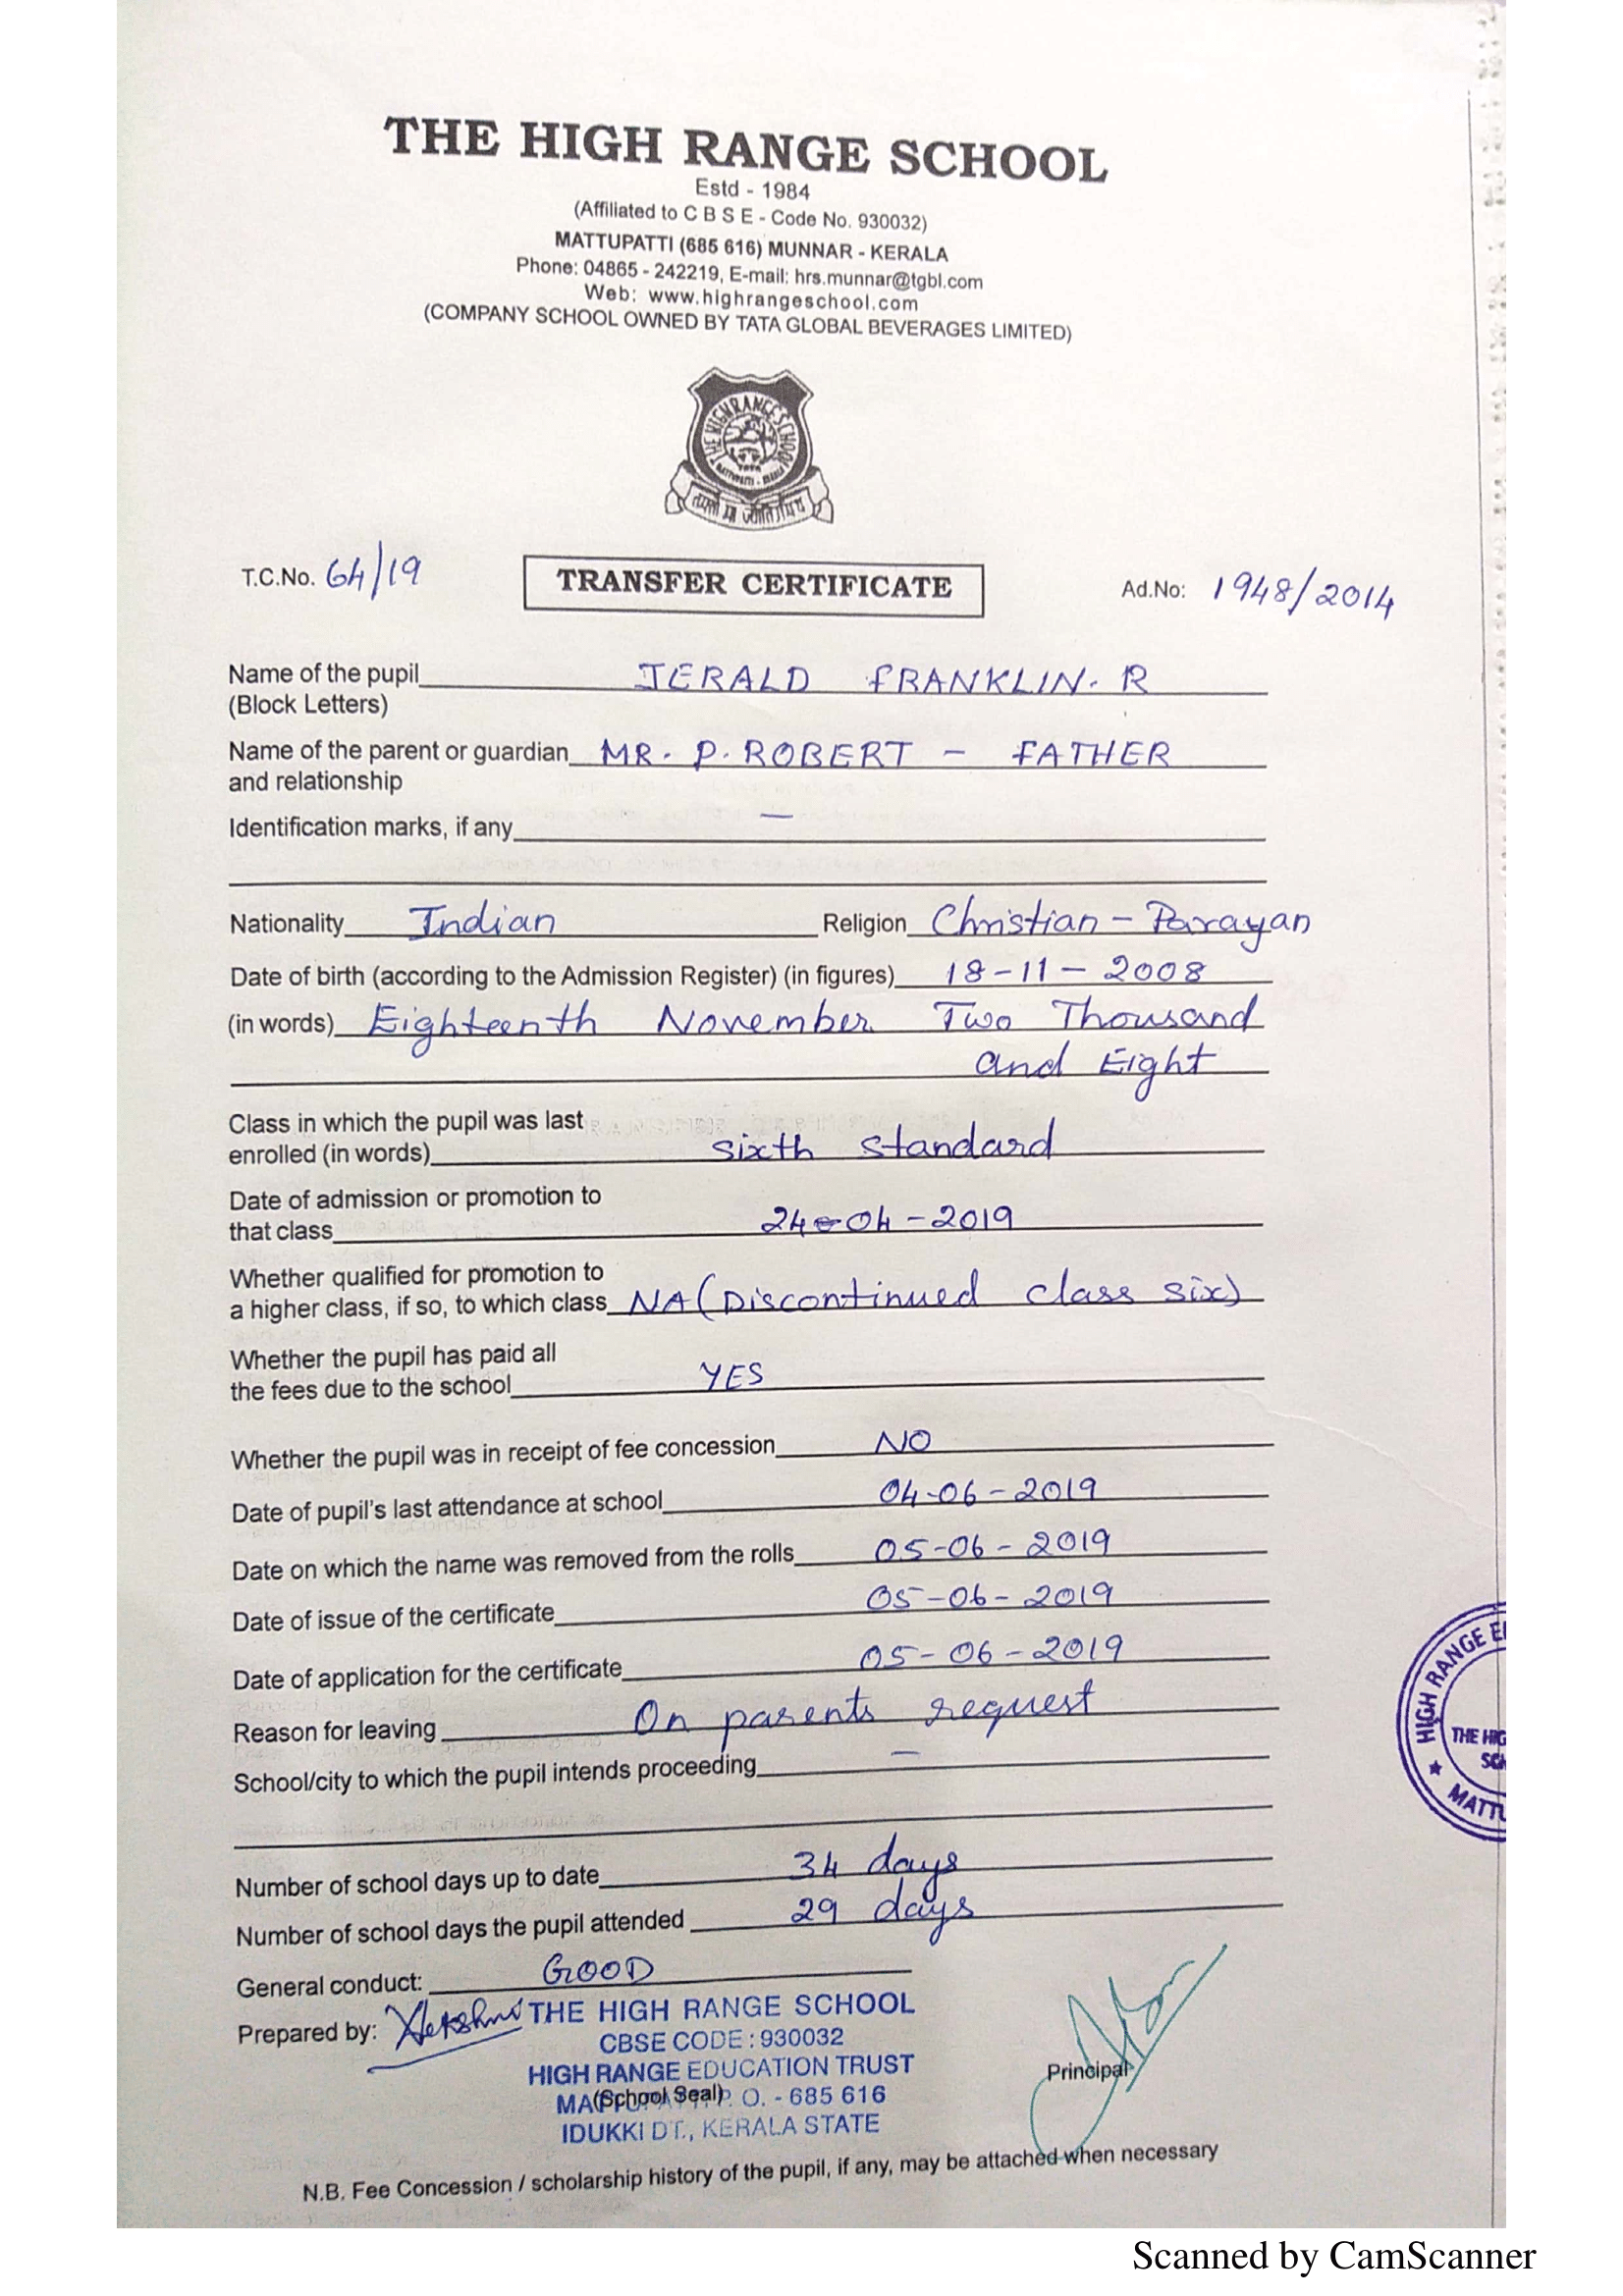 THE HIGH RANGE SCHOOL
Estd - 1984
(Affiliated to C B S E - Code No. 930032)
MATTUPATTI (685 616) MUNNAR - KERALA
Phone: 04865 - 242219, E-mail: hrs.munnar@tgbl.com
Web: www.highrangeschool.com
(COMPANY SCHOOL OWNED BY TATA GLOBAL BEVERAGES LIMITED)
THE HIGH RANGE SCHOOL
T.C.No. 64/19 TRANSFER CERTIFICATE Ad.No: 1948/2014
Name of the pupil JERALD FRANKLIN. R
(Block Letters)
Name of the parent or guardian MR. P. ROBERT - FATHER
and relationship
Identification marks, if any —
Nationality Indian Religion Christian - Parayan
Date of birth (according to the Admission Register) (in figures) 18-11-2008
(in words) Eighteenth November Two Thousand
and Eight
Class in which the pupil was last
enrolled (in words) Sixth Standard
Date of admission or promotion to
that class 24-04-2019
Whether qualified for promotion to
a higher class, if so, to which class NA (Discontinued class six)
Whether the pupil has paid all
the fees due to the school YES
Whether the pupil was in receipt of fee concession NO
Date of pupil's last attendance at school 04-06-2019
Date on which the name was removed from the rolls 05-06-2019
Date of issue of the certificate 05-06-2019
Date of application for the certificate 05-06-2019
Reason for leaving On parents request
School/city to which the pupil intends proceeding —
HIGH RANGE
THE HIG
MATTU
Number of school days up to date 34 days
Number of school days the pupil attended 29 days
General conduct: GOOD
Prepared by: THE HIGH RANGE SCHOOL
CBSE CODE : 930032
HIGH RANGE EDUCATION TRUST
Principal
(School Seal) P. O. - 685 616
IDUKKI DT., KERALA STATE
N.B. Fee Concession / scholarship history of the pupil, if any, may be attached when necessary
Scanned by CamScanner